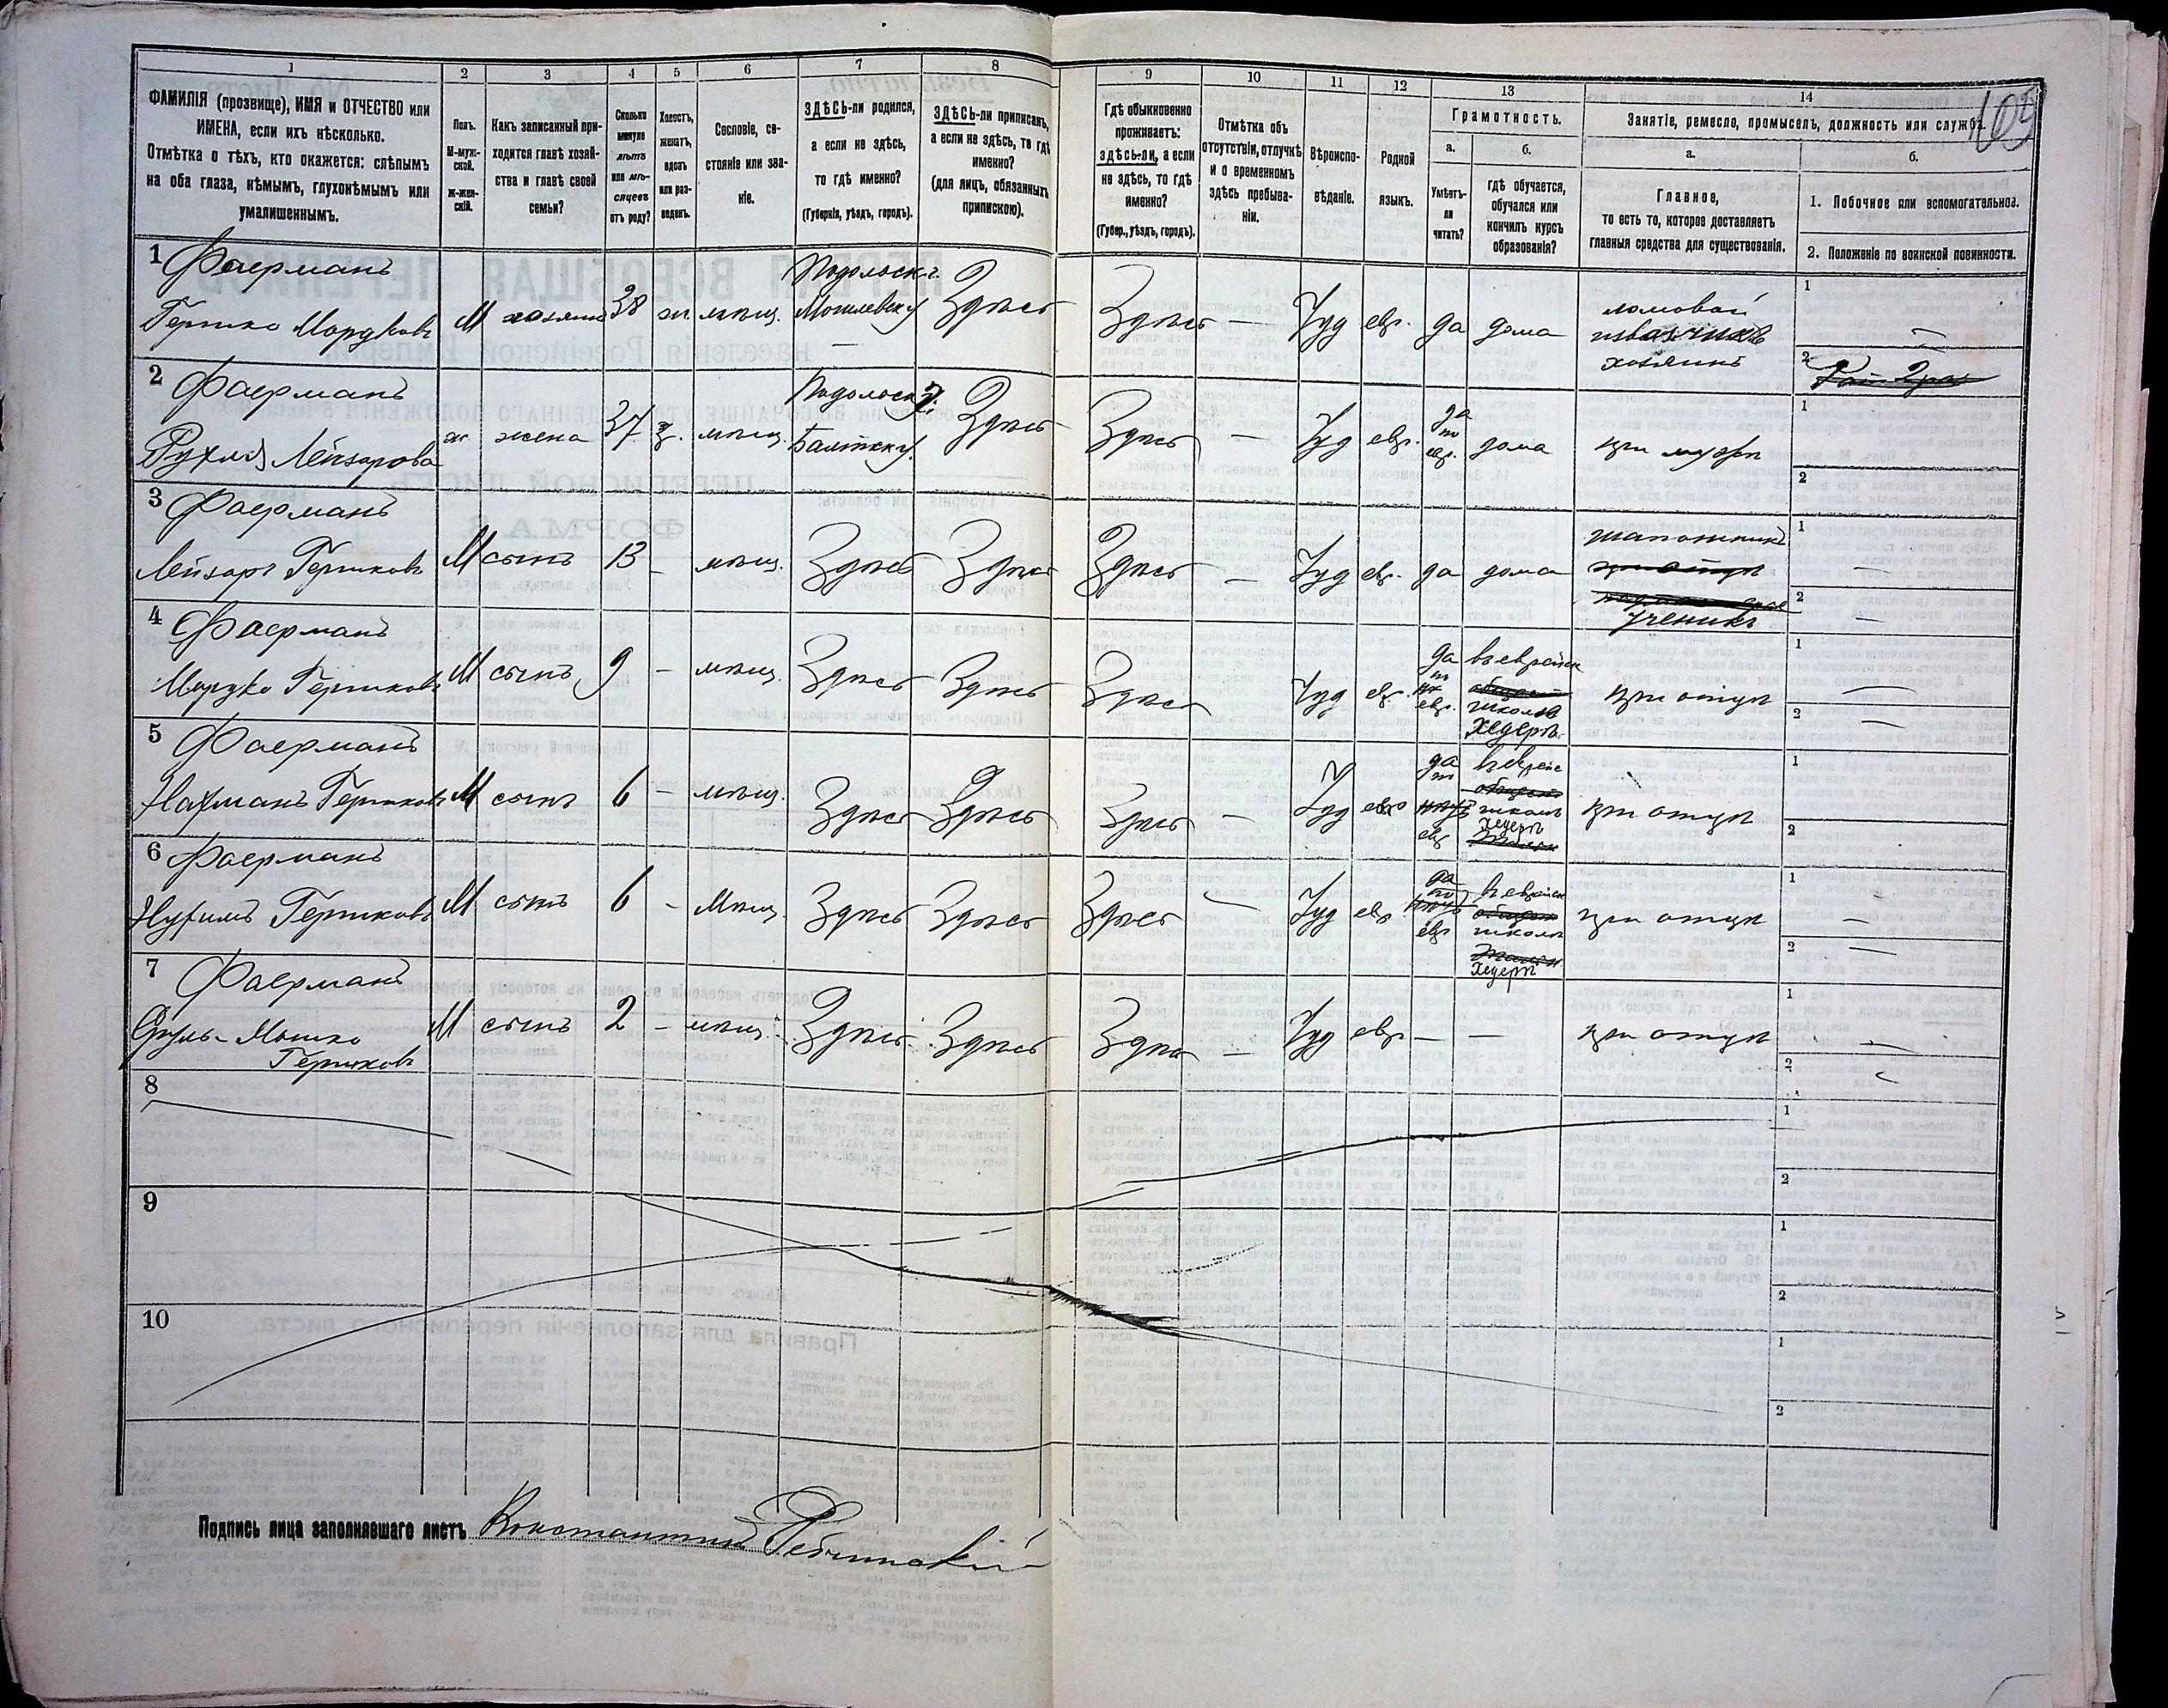 1 2 3 4 5 6 7 8 9 10 11 12 13 14
ФАМИЛІЯ (прозвище), ИМЯ и ОТЧЕСТВО или
ИМЕНА, если ихъ нѣсколько.
Отмѣтка о тѣхъ, кто окажется: слѣпымъ
на оба глаза, нѣмымъ, глухонѣмымъ или
умалишеннымъ.
Полъ.
М-муж-
ской.
Ж-жен-
скій.
Какъ записанный при-
ходится главѣ хозяй-
ства и главѣ своей
семьи?
Сколько
минуло
лѣтъ
или мѣ-
сяцевъ
отъ роду?
Холостъ,
женатъ,
вдовъ
или раз-
веденъ.
Сословіе, со-
стояніе или зва-
ніе.
ЗДѢСЬ-ли родился,
а если не здѣсь,
то гдѣ именно?
(Губернія, уѣздъ, городъ).
ЗДѢСЬ-ли приписанъ,
а если не здѣсь, то гдѣ
именно?
(для лицъ, обязанныхъ
припискою).
Гдѣ обыкновенно
проживаетъ:
здѣсь-ли, а если
не здѣсь, то гдѣ
именно?
(Губер., уѣздъ, городъ).
Отмѣтка объ
отсутствіи, отлучкѣ
и о временномъ
здѣсь пребыва-
ніи.
Вѣроиспо-
вѣданіе.
Родной
языкъ.
Грамотность.
а.
Умѣетъ-
ли
читать?
б.
гдѣ обучается,
обучался или
кончилъ курсъ
образованія?
Занятіе, ремесло, промыселъ, должность или служба.
а.
Главное,
то есть то, которое доставляетъ
главныя средства для существованія.
б.
1. Побочное или вспомогательное.
2. Положеніе по воинской повинности.
1 Фаерманъ Подольск. г.
Гершко Мордковъ М хозяинъ 38 ж. мѣщ. Могилевск у Здѣсь Здѣсь — Іуд евр. да дома ломовой
извозчикъ
хозяинъ
2 Фаерманъ Подольск г.
Рухля Лейзорова ж жена 37 з. мѣщ. Балтск у. Здѣсь Здѣсь — Іуд евр. да по евр. дома при мужѣ
3 Фаерманъ
Лейзоръ Гершковъ М сынъ 13 — мѣщ. Здѣсь Здѣсь Здѣсь — Іуд евр. да дома шапошникъ
при отцѣ
ученикъ
4 Фаерманъ
Мордко Гершковъ М сынъ 9 — мѣщ. Здѣсь Здѣсь Здѣсь Іуд евр. да по евр. въ еврейск школѣ хедеръ при отцѣ
5 Фаерманъ
Нахманъ Гершковъ М сынъ 6 — мѣщ. Здѣсь Здѣсь Здѣсь — Іуд евр да по евр въ еврейс школѣ хедеръ при отцѣ
6 Фаерманъ
Нухимъ Гершковъ М сынъ 6 — мѣщ. Здѣсь Здѣсь Здѣсь — Іуд евр да по евр въ еврейск школѣ хедеръ при отцѣ
7 Фаерманъ
Сруль-Мошко М сынъ 2 — мѣщ. Здѣсь Здѣсь Здѣсь — Іуд евр — — при отцѣ
Гершковъ
8
9
10
Подпись лица заполнявшаго листъ Константинъ